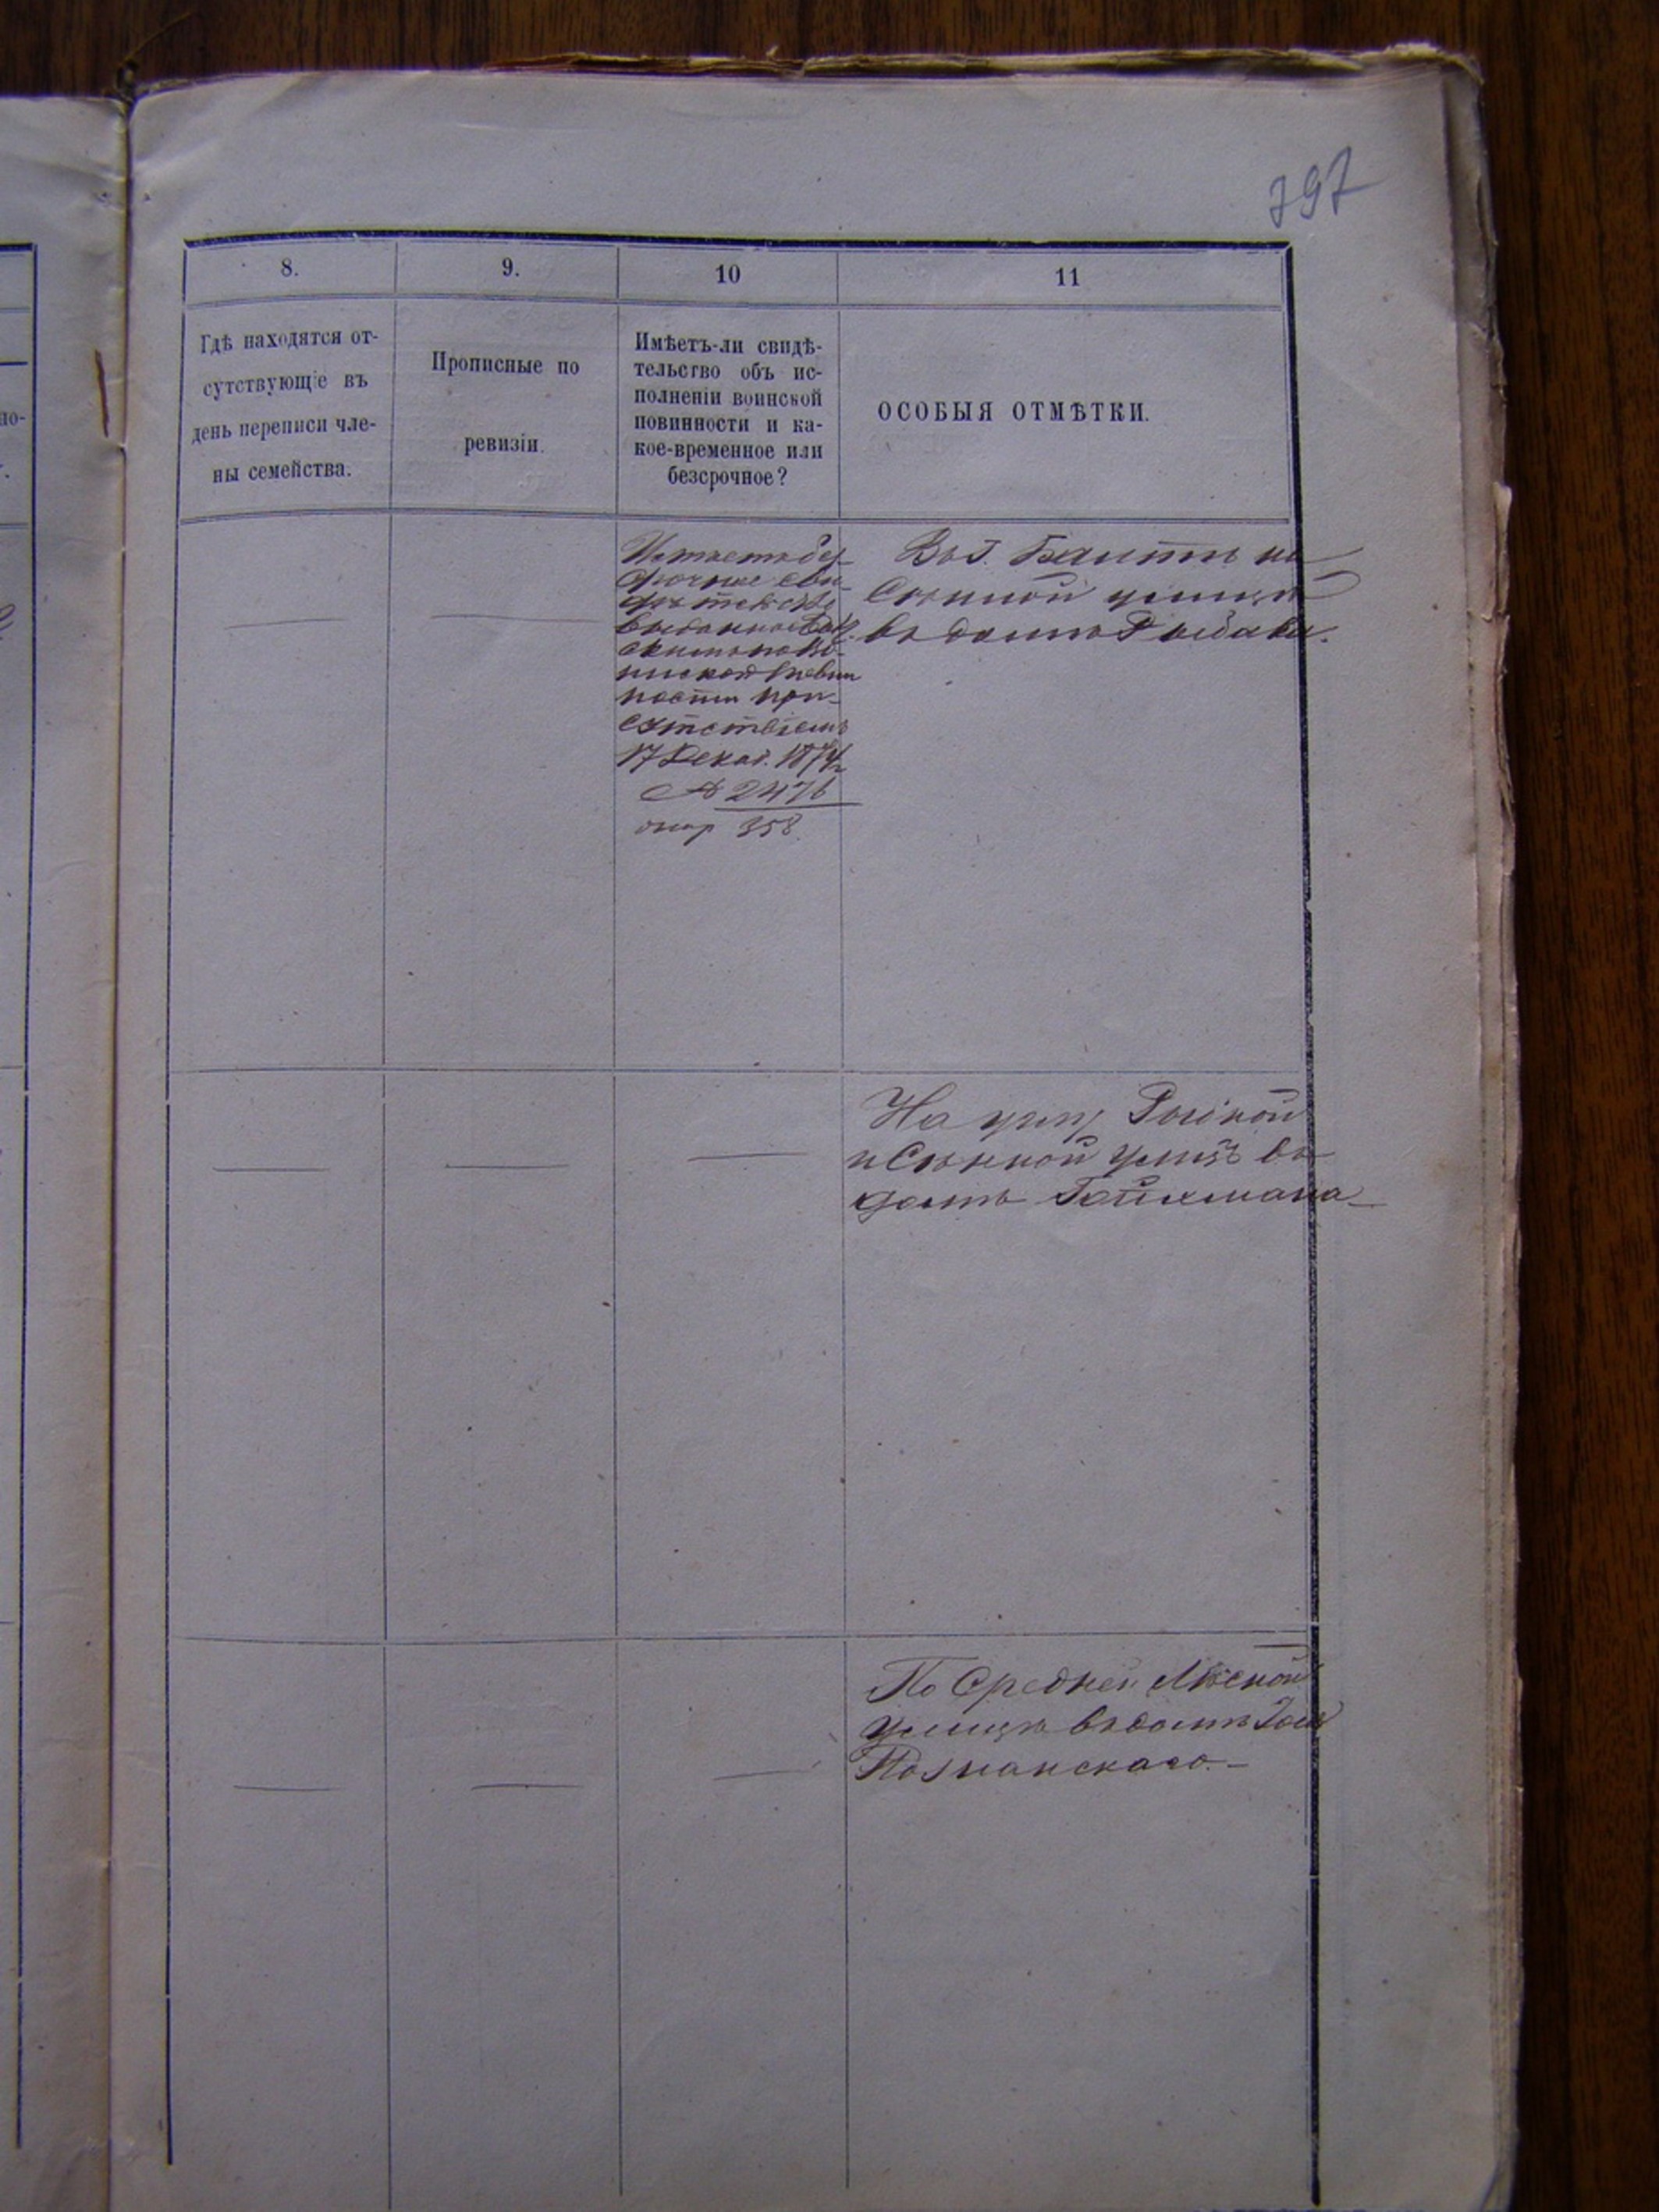 397
8.
9.
10
11
Гдѣ находятся от-
сутствующіе въ
день переписи чле-
ны семейства.
Прописные по
ревизіи.
Имѣетъ-ли свидѣ-
тельство объ ис-
полненіи воинской
повинности и ка-
кое-временное или
безсрочное?
ОСОБЫЯ ОТМѢТКИ.
но-
срочное сви-
дѣтельство
выданное
нской повин
ности при-
сутствіемъ
17 Декаб. 1874
№ 2476
358.
на
Сѣнной улицѣ
въ домѣ Рыбака.
На углу
и Сѣнной улицъ въ
домѣ Гойхмана
По Средней
улицѣ въ домѣ
Познанскаго.